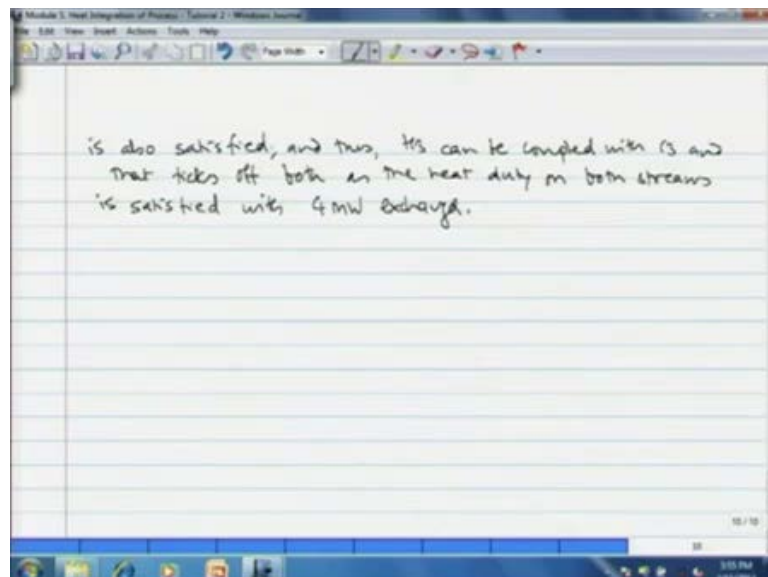 Module 5. Heat Integration of Process - Tutorial 2 - Windows Journal
File Edit View Insert Actions Tools Help
Page Width
is also satisfied, and thus, H3 can be coupled with C3 and
that ticks off both as the heat duty on both streams
is satisfied with 4 MW exchange.
10 / 10
10
3:55 PM